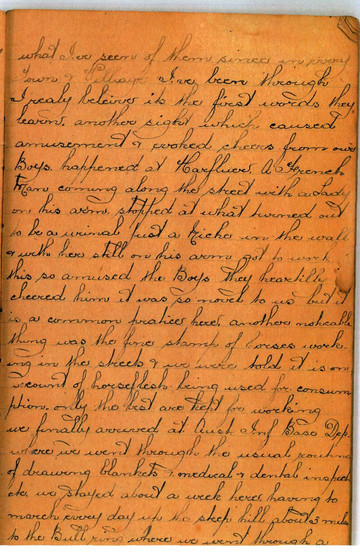 what I've seen of them since in every
Town & Village I've been through
I realy beleive its the first words they
learn, another sight which caused
amusement & evoked cheers from our
Boys happened at Harfluer. A French
man coming along the street with a Lady
on his arm stopped at what turned out
to be a urinal just a Niche in the wall
& with her still on his arm got to work
this so amused the Boys they heartily
cheered him it was so novel to us but it
is a common pratice here, another noticeable
thing was the fine stamp of Horses work-
ing in the streets & we were told it is on
account of horseflesh being used for consum
ption, only the best are kept for working
we finally arrived at Aust Inf Base Dep.
where we went through the usual routine
of drawing blankets & medical & dental inspect
etc, we stayed about a week here having to
march every day up the steep hill about 3 miles
to the Bull ring where we went through a